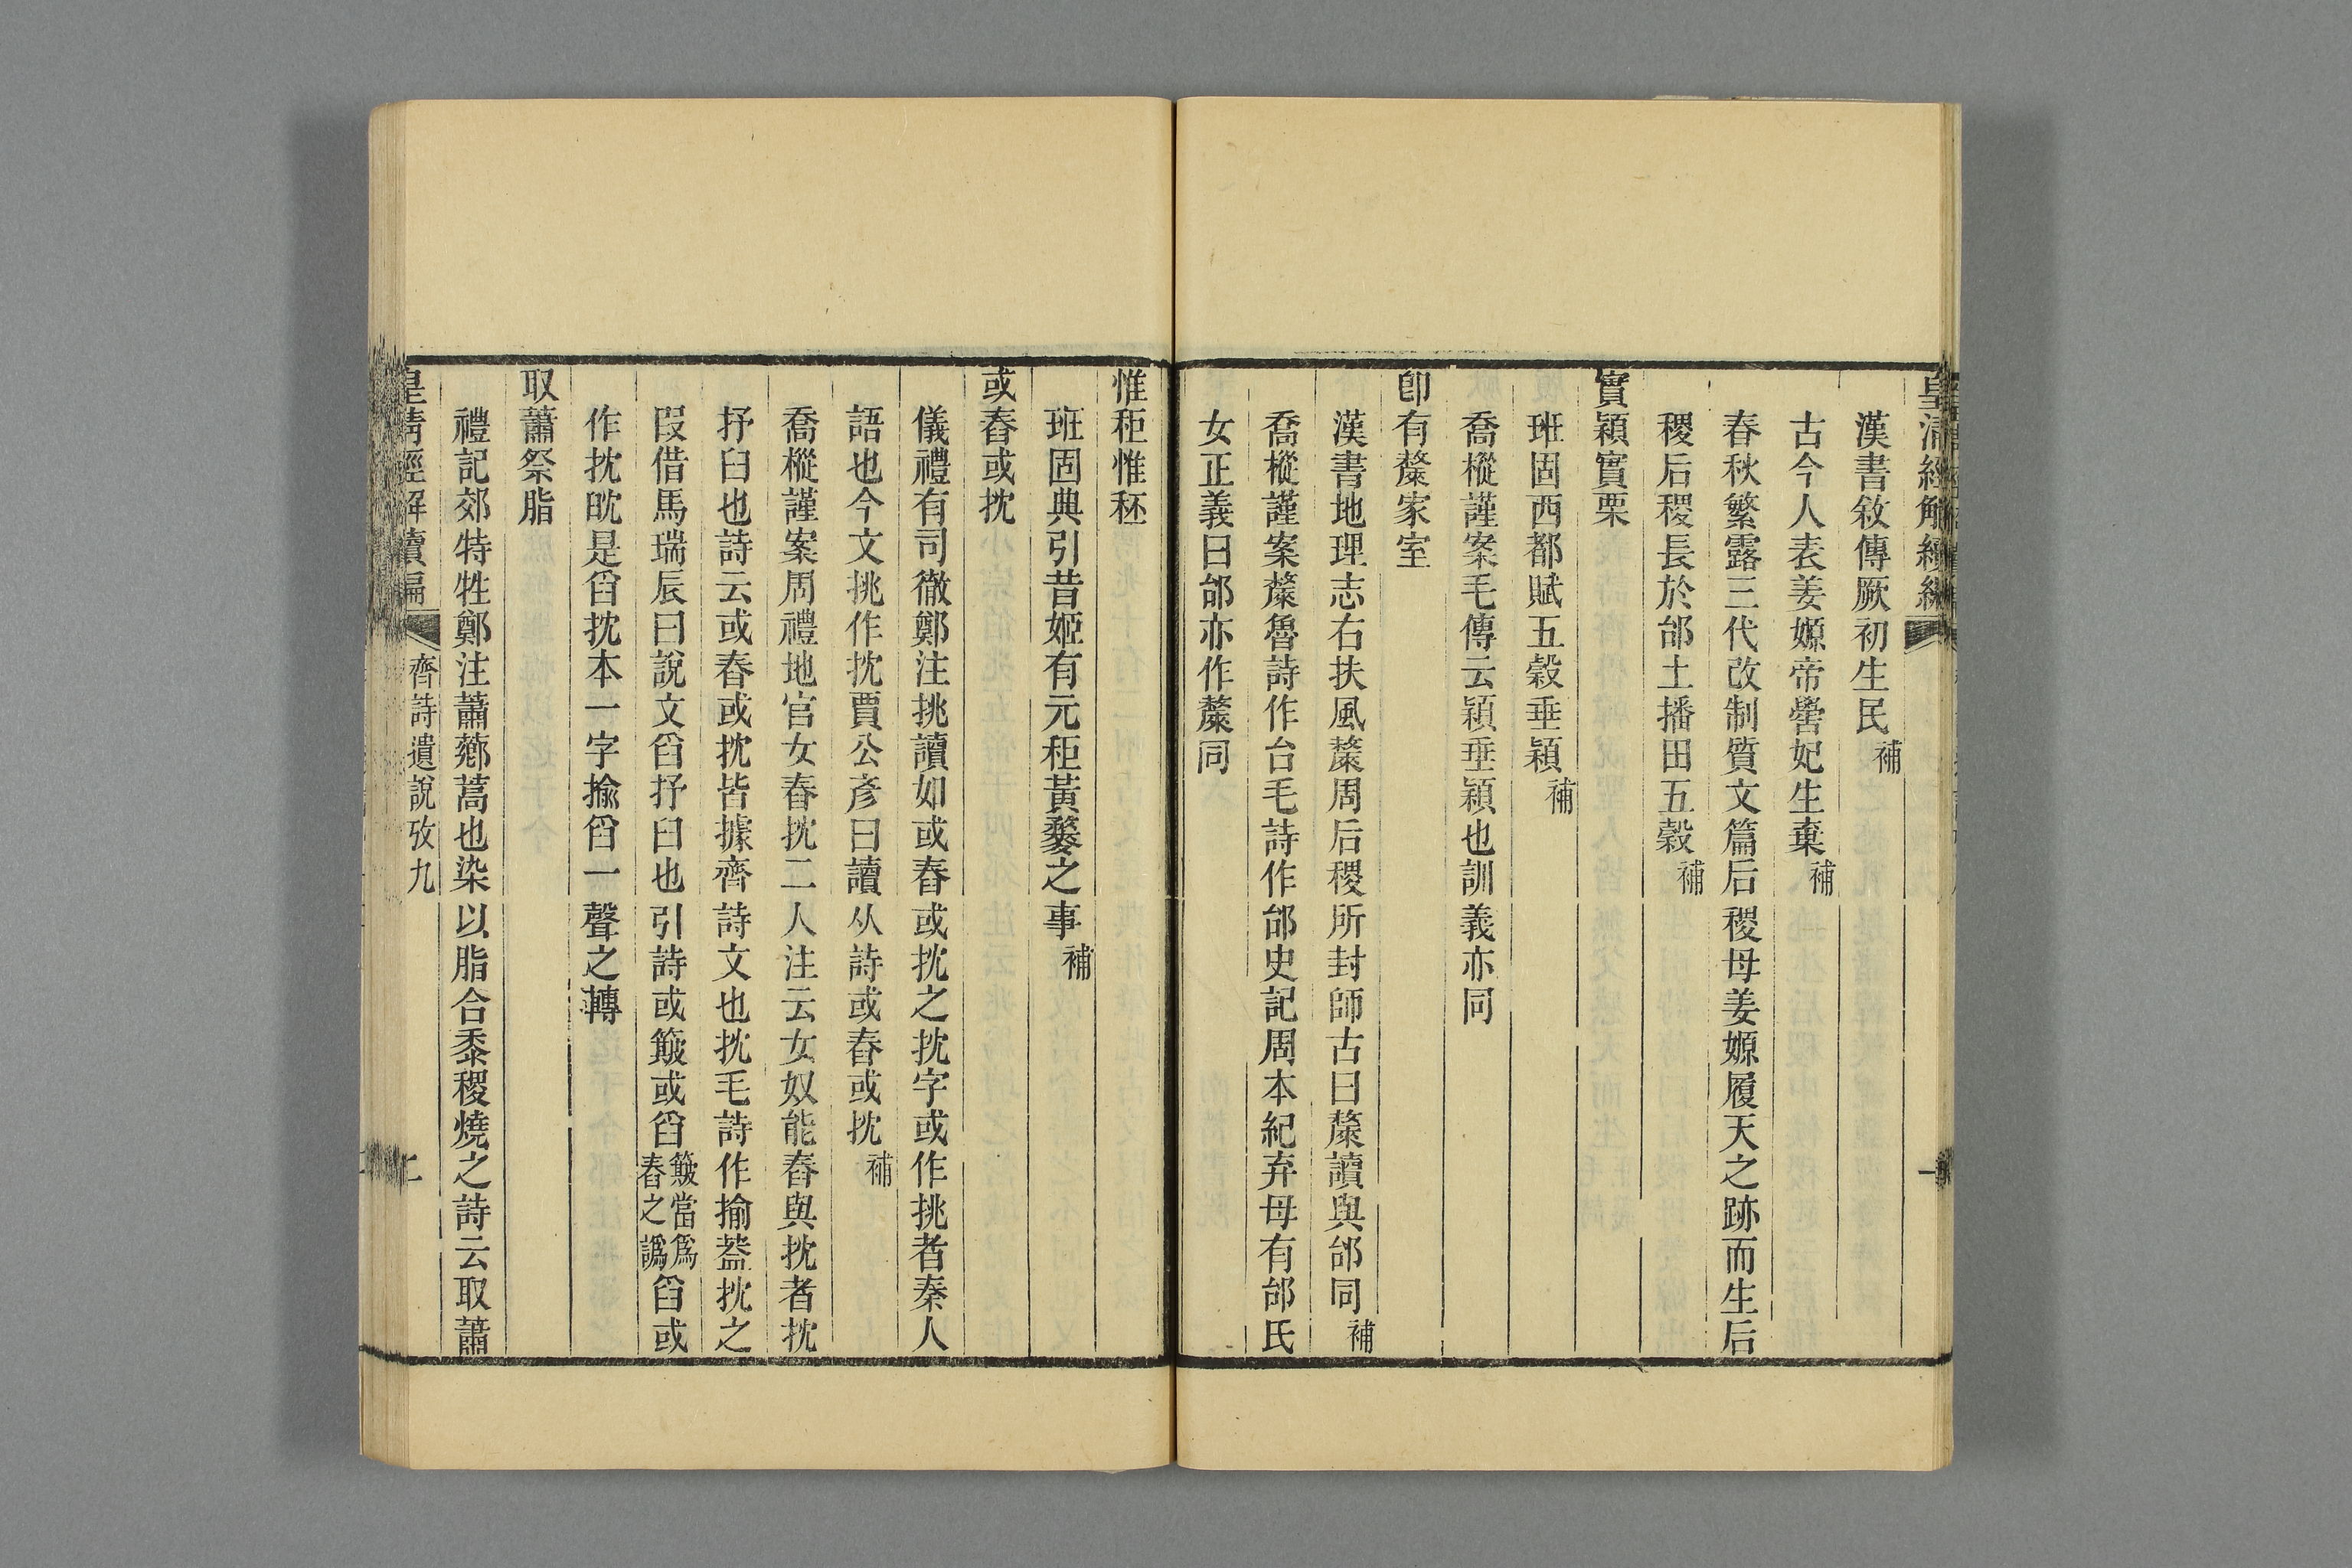 皇清經解續編
漢書敘傳厥初生民補
古今人表姜嫄帝嚳妃生棄補
春秋繁露三代改制質文篇后稷母姜嫄履天之跡而生后
稷后稷長於邰土播田五穀補
實穎實栗
班固西都賦五穀垂穎補
喬樅謹案毛傳云穎垂穎也訓義亦同
卽有斄家室
漢書地理志右扶風斄周后稷所封師古曰斄讀與邰同補
喬樅謹案斄魯詩作台毛詩作邰史記周本紀弃母有邰氏
女正義曰邰亦作斄同
惟秬惟秠
班固典引昔姬有元秬黃麰之事補
或舂或抭
儀禮有司徹鄭注挑讀如或舂或抭之抭字或作挑者秦人
語也今文挑作抭賈公彥曰讀从詩或舂或抭補
喬樅謹案周禮地官女舂抭二人注云女奴能舂與抭者抭
抒臼也詩云或舂或抭皆據齊詩文也抭毛詩作揄葢抭之
叚借馬瑞辰曰說文舀抒臼也引詩或簸或舀簸當爲舂之譌舀或
作抭㼯是舀抭本一字揄舀一聲之轉
取蕭祭脂
禮記郊特牲鄭注蕭薌蒿也染以脂合黍稷燒之詩云取蕭
皇清經解續編
齊詩遺說攷九